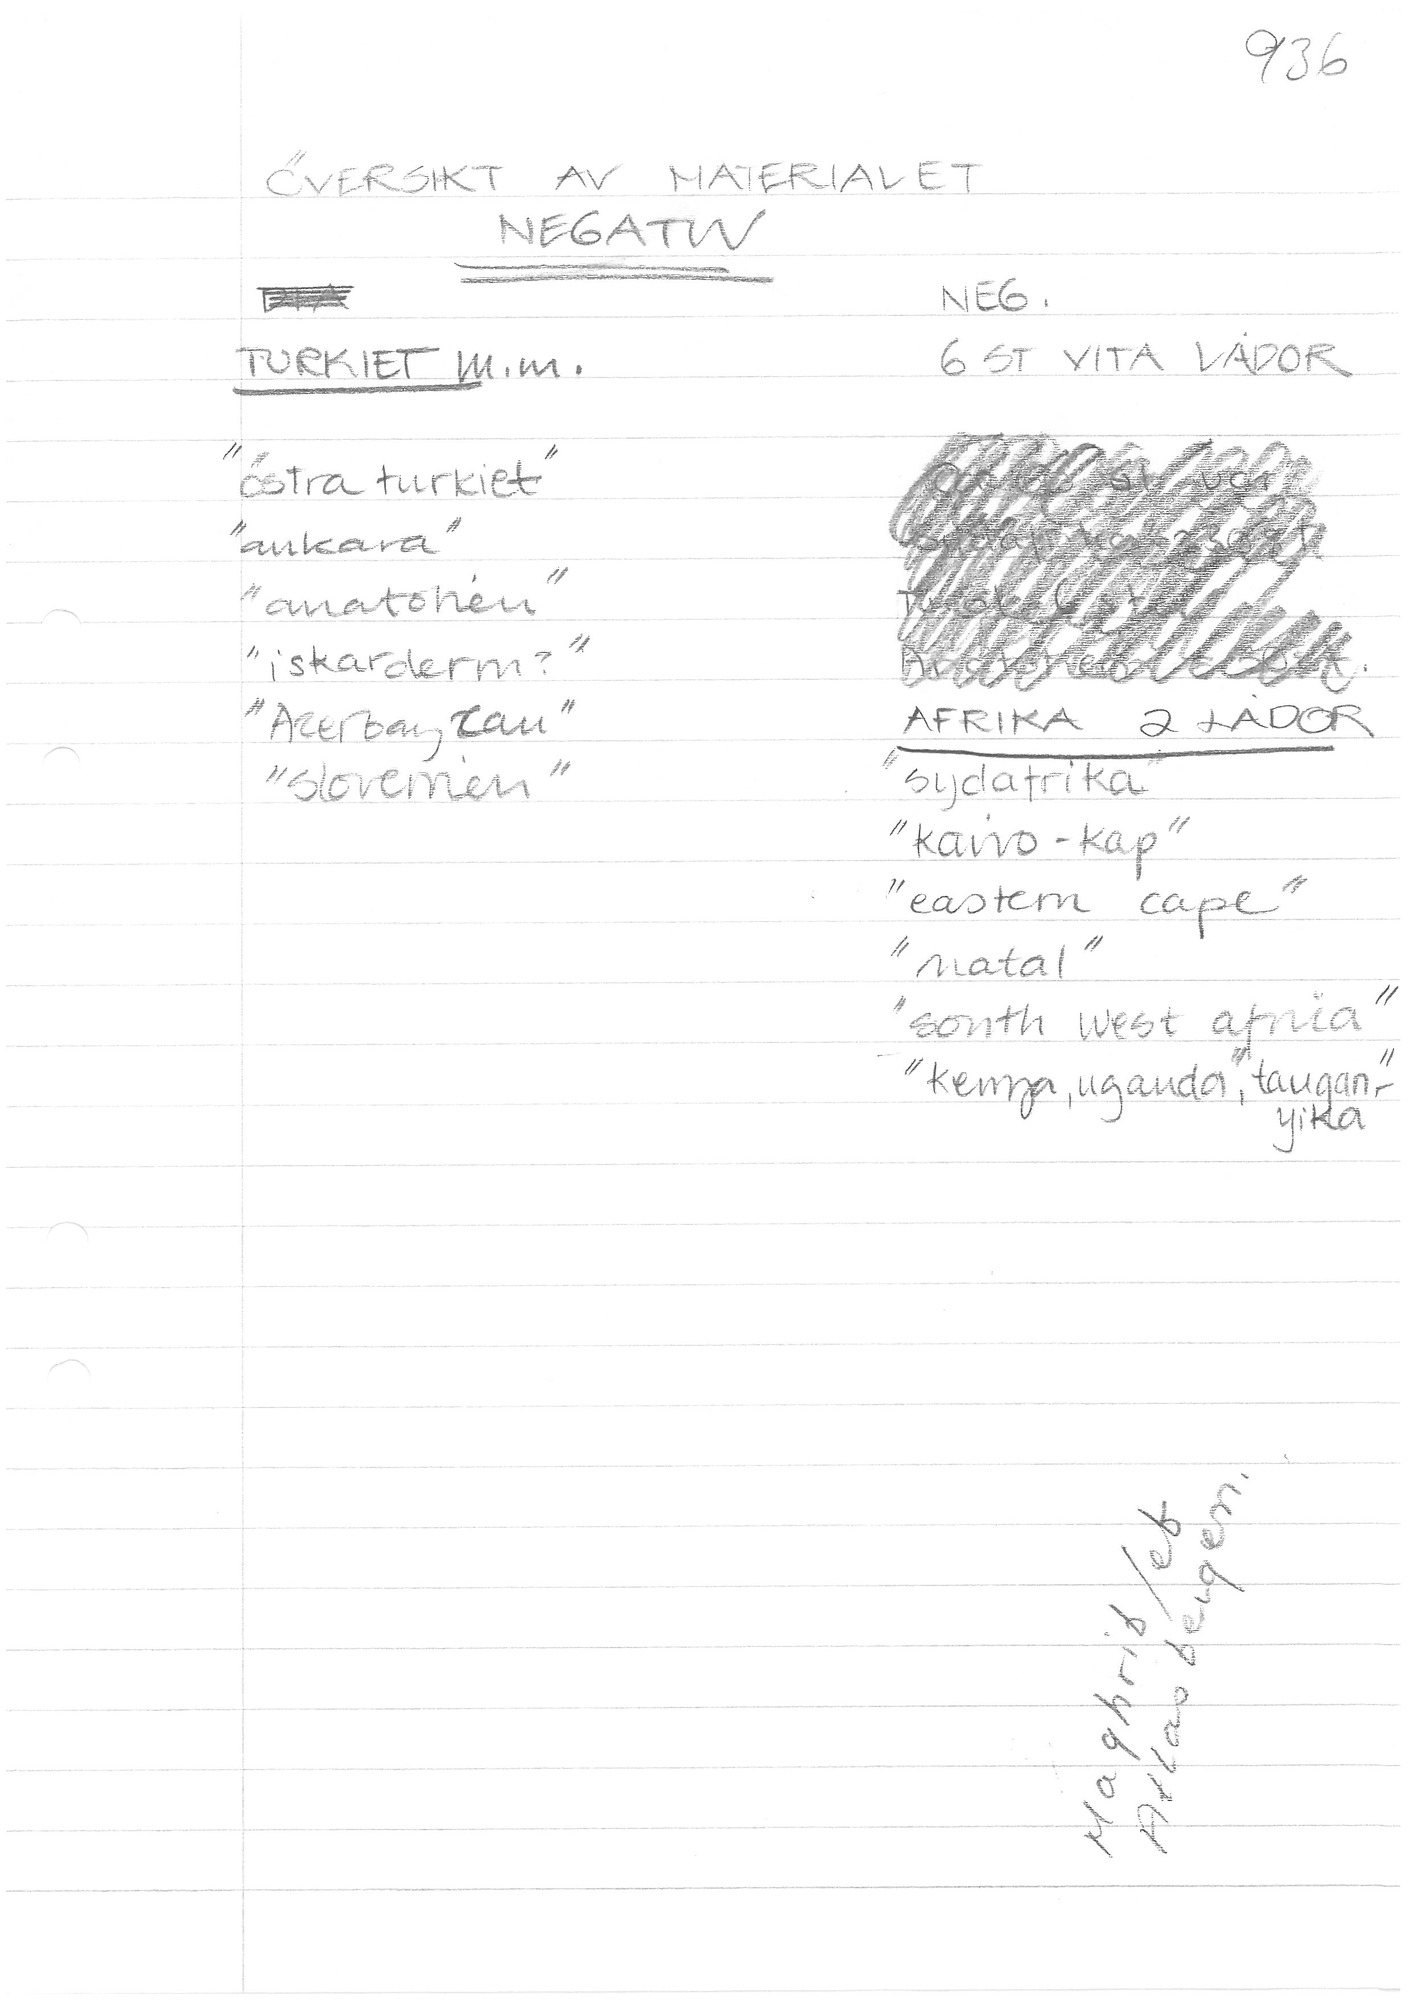 936
ÖVERSIKT AV MATERIALET
NEGATIV
NEG.
TURKIET m.m.
6 ST VITA LÅDOR
"östra turkiet"
"ankara"
"anatolien"
"iskarderm?"
"Azerbayzan"
"slovenien"
AFRIKA 2 LÅDOR
"sydafrika"
"kairo-kap"
"eastern cape"
"natal"
"south west africa"
"kenya, uganda", "tangan-"
yika
Maghrib/eb
Atlas bergen.